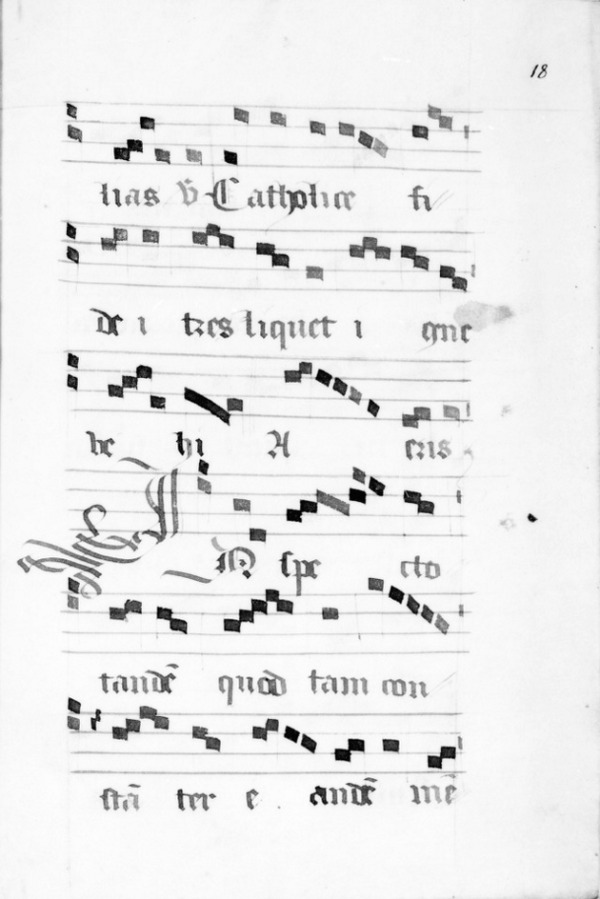 18
lias ℣ Catholice fi
de i tres liquet i gne
be hi A eris
In spe cto
tandẽ quod tam con
stã ter e andẽ mẽ